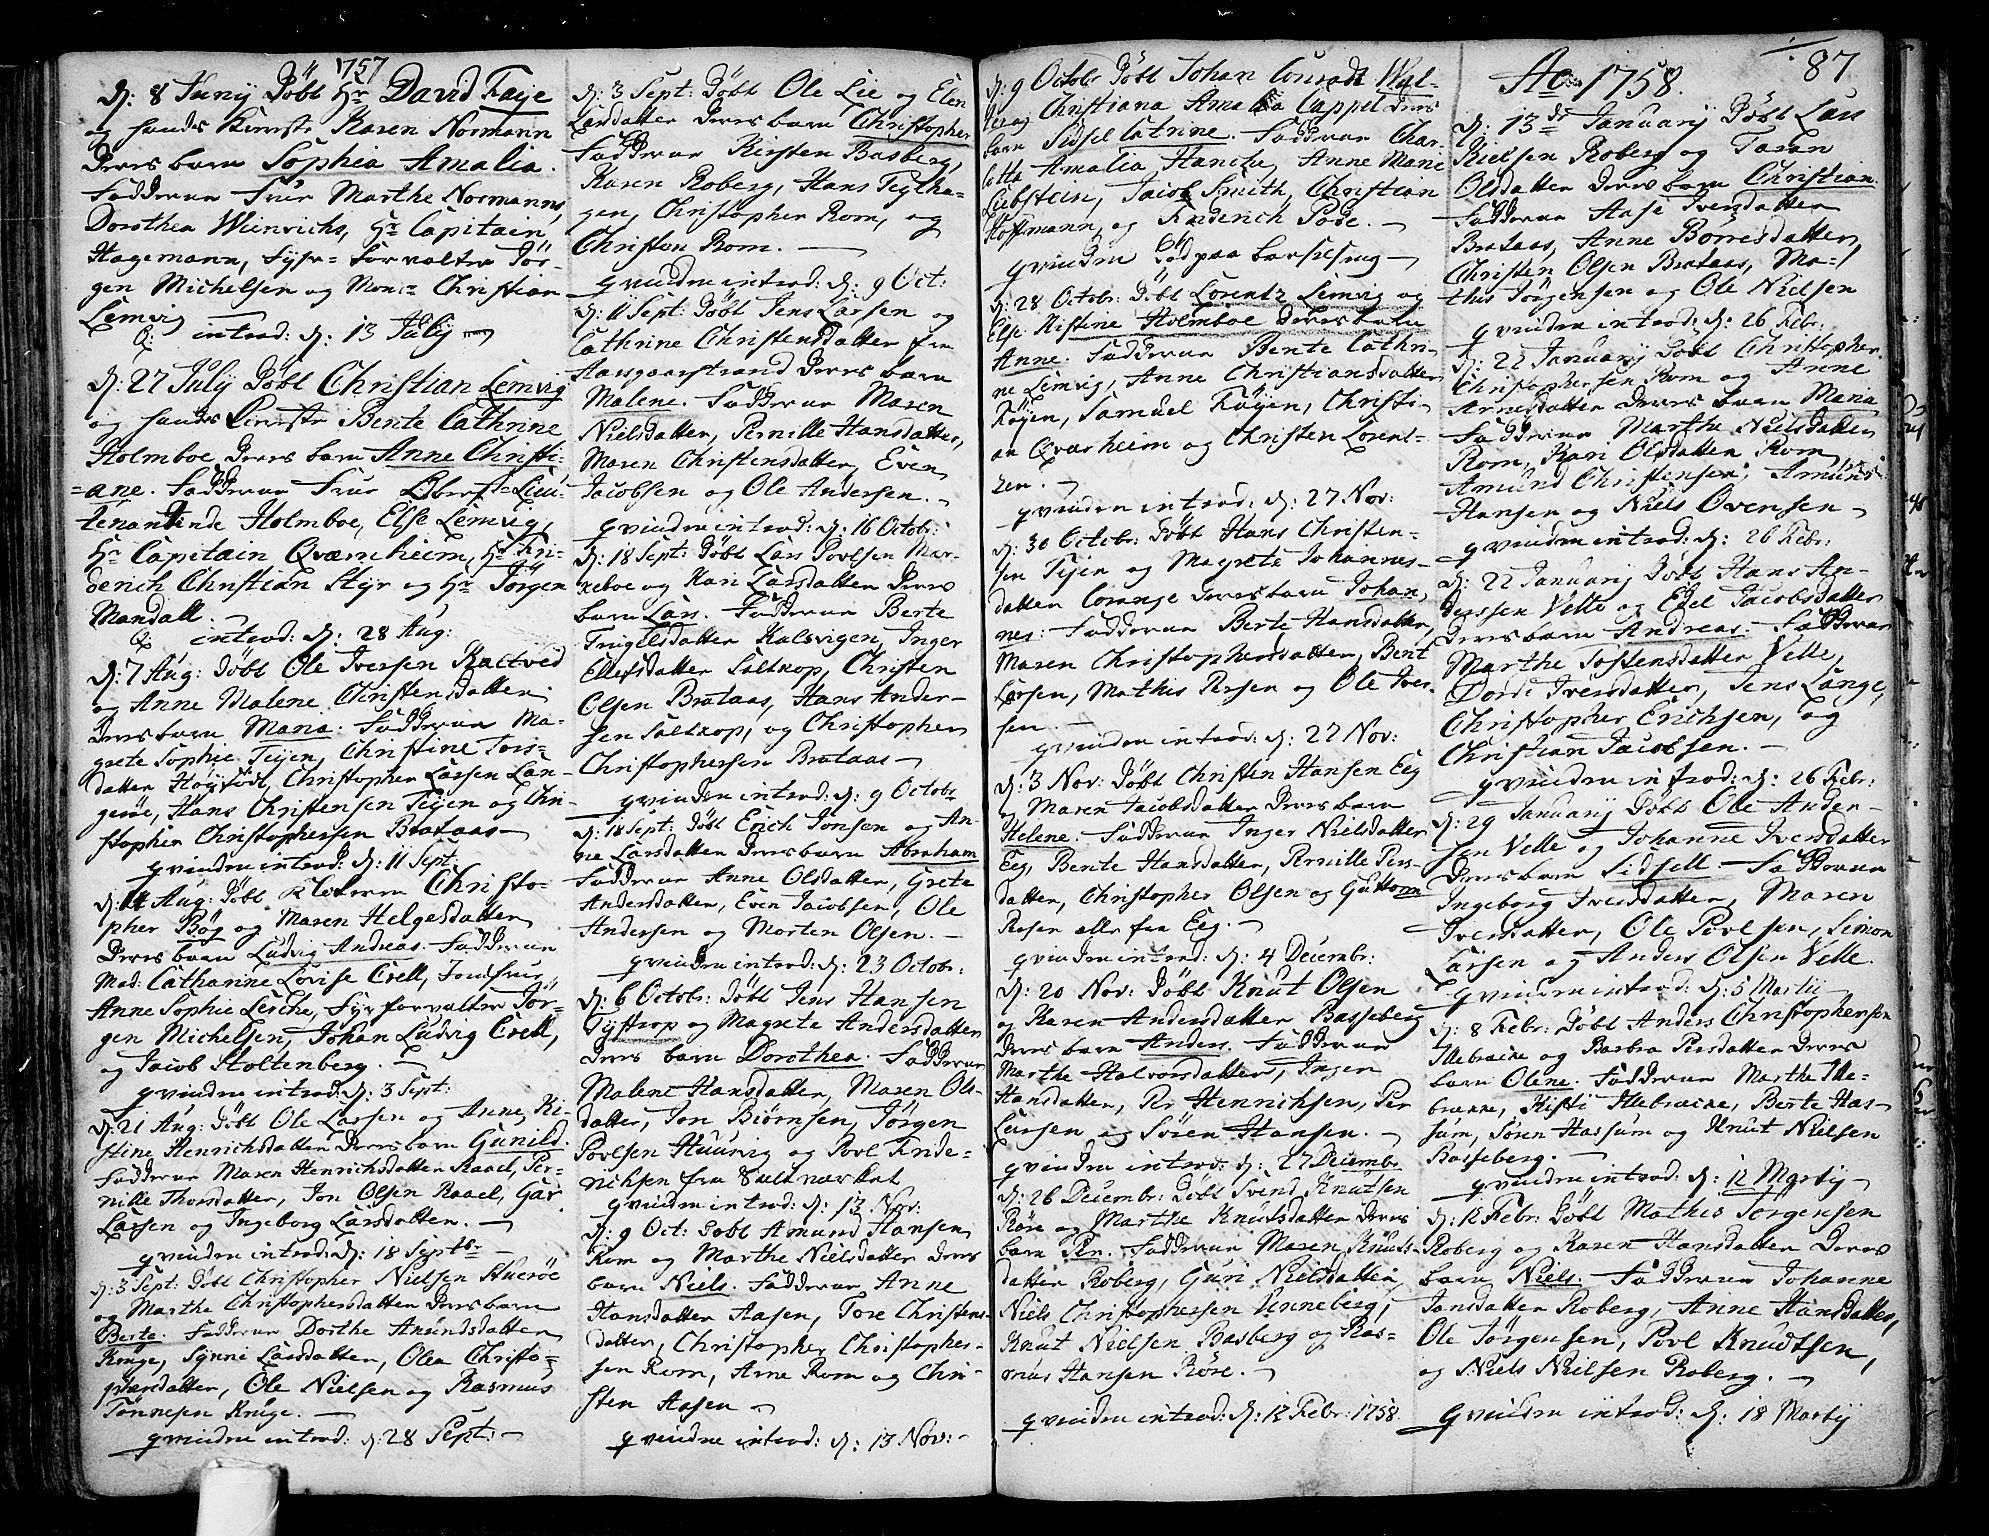 1757
D: 8 Junij Döbt Hr David Faye
og hands Kierste Karen Normann
deres barn Sophia Amalia.
Fadderne Frue Marthe Normanns,
Dorothea Weinrichs, Hr Capitain
Hagemann, Fyhr-Forvalter Jör-
gen Michelsen og Mons: Christian
Lemvig
Q: introd: D: 13 Julij
D: 27 Julij Döbt Christian Lemvig
og hands Kierste Bente Cathrine
Holmboe deres barn Anne Christi-
=ane. Fadderne Frue Oberst-Lieu-
tenantinde Holmboe, Else Lemvig,
Hr Capitain Qværnheim, Hr Fri-
derich Christian Styr og Hr Jörgen
Mandall.
Q: introd: D: 28 Aug:
D: 7 Aug: Döbt Ole Iversen Kaltved
og Anne Malene Christensdatter
deres barn Maria. Fadderne Ma-
grete Sophie Teijen, Christine Tors-
datter, Christopher Larsen Lan-
geröe, Hans Christensen Teijen og Chri-
stopher Christophersen Brataas
qvinden introd: D: 11 Sept:
D: 14 Aug: Döbt Christo-
pher Bög og Maren Helgesdatter
deres barn Ludvig Andreas. Fadderne
Mad: Catharine Lovise Crell, Jomfrue
Anne Sophie Lerche, Fyrforvalter Jör-
gen Michelsen, Johan Ludvig Crell,
og Jacob Stoltenberg.
qvinden introd: D: 3 Sept:
D: 21 Aug: Döbt Ole Larsen og Anne Ki-
stine Henrichsdatter deres barn Gunild.
Fadderne Maren Henrichsdatter Raael, Per-
nille Thorsdatter, Jon Olsen Raael,
Larsen og Ingeborg Larsdatter.
qvinden introd: D: 18 Septbr
D: 3 Sept: Döbt Christopher Nielsen Stueröe
og Marthe Christophersdatter deres barn
Berte. Fadderne Dorthe Amundsdatter
Kruge, Synni Larsdatter, Olea Christo-
phersdatter, Ole Nielsen og Rasmus
Tönnesen Kruge.
qvinden introd: D: 28 Sept:
D: 3 Sept: Döbt Ole Lie og Elen
Larsdatter deres barn Christopher
Fadderne Kirsten Basberg,
Karen Roberg, Hans Teytha-
gen, Christopher Rom, og
Christen Rom.
qvinden introd: D: 9 Oct:
D: 11 Sept: Döbt Jens Larsen og
Cathrine Christensdatter fra
Aasgaarstrand deres barn
Malene. Fadderne Maren
Nielsdatter, Pernille Hansdatter,
Maren Christensdatter, Even
Jacobsen og Ole Andersen.
qvinden introd: D: 16 Octobr:
D: 18 Sept: Döbt Lars Povlsen Mar-
keboe og Kari Larsdatter deres
barn Lars. Fadderne Berte
Trugelsdatter Kalsvigen, Inger
Ellefsdatter Saltkop, Christen
Olsen Brataas, Hans Ander-
sen Saltkop, og Christopher
Christophersen Brataas
qvinden introd: D: 9 Octobr
D: 18 Sept: Döbt Erich Jonsen og An-
ne Larsdatter deres barn Abraham
Fadderne Anne Olsdatter, Grete
Andersdatter, Even Jacobsen, Ole
Andersen og Morten Olsen.
qvinden introd: D: 23 Octobr:
D: 6 Octobr: Döbt Jens Hansen
og Magrete Andersdatter
deres barn Dorothea. Fadderne
Malene Hansdatter, Maren Ols-
datter, Jon Biörnsen, Jörgen
Povlsen Huusvig og Povl Fride-
richsen fra Valt
qvinden introd: D: 13 Nov:
D: 9 Oct: Döbt Amund Hansen
Rom og Marthe Nielsdatter deres
barn Niels. Fadderne Anne
Hansdatter Aasen, Tore Christens-
datter, Christopher Christopher-
sen Rom, Arne Rom og Chri-
sten Aasen
qvinden introd: D: 13 Nov:
D: 9 Octobr: Döbt Johan Conradt
og Christiana Amalia Cappel deres
barn Sidsel Catrine. Fadderne Char-
lotta Amalia Hancke, Anne Marie
Liebstein, Jacob Smith, Christian
Hoffmann, og Friderich Pode.
qvinden Död paa barselseng
D: 28 Octobr: Döbt Lorentz Lemvig og
Else Kistine Holmboe deres barn
Anne. Fadderne Bente Cathri-
ne Lemvig, Anne Christiansdatter
Röyen, Samuel Röyen, Christi-
an Qværheim og Christen Lorent-
zen.
qvinden introd: D: 27 Nov:
D: 30 Octobr: Döbt Hans Christen-
sen Teijen og Magrete Johannes-
datter Corange deres barn Johan-
nes: Fadderne Berte Hansdatter,
Maren Christophersdatter, Bent
Larsen, Mathis Persen og Ole Iver-
sen
qvinden introd: D: 22 Nov:
D: 3 Nov: Döbt Christen Hansen Eeg
og Maren Jacobsdatter deres barn
Helene. Fadderne Inger Nielsdatter
Eeg, Bente Hansdatter, Pernille Pers-
datter, Christopher Olsen og Guttorm
Rosen alle fra Eeg.
qvinden introd: D: 4 Decembr:
D: 20 Nov: Döbt Knut Olsen
og Karen Andersdatter Basseberg
deres barn Anders. Fadderne
Marthe Halvorsdatter, Inger
Hansdatter, Per Henrichsen, Per
Larsen og Sören Hansen.
qvinden introd: D: 27 Decembr
D: 26 Decembr: Döbt Svend Knutsen
Röre og Marthe Knutsdatter deres
barn Per. Fadderne Maren Knuds-
datter Roberg, Guri Nielsdatter,
Niels Christophersen Unneberg,
Knut Nielsen Basberg og Ras-
mus Hansen Röre.
qvinden introd: D: 12 Febr: 1758.
87
Ao 1758.
D: 13de Januarij Döbt Lars
Nielsen Roberg og Taran
Olsdatter deres barn Christian.
Fadderne Aase Iversdatter
Brataas, Anne Börresdatter,
Christen Olsen Brataas, Ma-
this Jörgensen og Ole Nielsen
qvinden introd: D: 26 Febr:
D: 22 Januarij Döbt Christopher
Christophersen Rom og Anne
Arnesdatter deres barn Maria
Fadderne Marthe Nielsdatter
Rom, Kari Olsdatter Rom,
Amund Christensen, Amund
Hansen og Niels Ovensen
qvinden introd: D: 26 Febr:
D: 22 Januarij Döbt Hans An-
dersen Velle og Edel Jacobsdatter
deres barn Andreas. Fadderne
Marthe Tostensdatter Velle,
Dordi Iversdatter, Jens Lange,
Christopher Erichsen, og
Christian Jacobsen.
qvinden introd: D: 26 Febr:
D: 29 Januarij Döbt Ole Ander-
sen Velle og Johanne Iversdatter
deres barn Sidsell. Fadderne
Ingeborg Iversdatter, Maren
Iversdatter, Ole Povlsen, Simon
Larsen og Anders Olsen Velle.
qvinden introd: D: 5 Martij
D: 8 Febr: Döbt Anders Christophersen
Illebracke og Barbra Persdatter deres
barn Olene. Fadderne Marthe Ille-
bracke, Kisti Illebracke, Berte Has-
sum, Sören Hassum og Knut Nielsen
Basseberg.
qvinden introd: D: 12 Martij
D: 12 Febr: Döbt Mathis Jörgensen
Roberg og Karen Hansdatter deres
barn Niels. Fadderne Johanne
Jansdatter Roberg, Anne Hansdatter,
Ole Jörgensen, Povl Knudtsen,
og Niels Nielsen Roberg.
qvinden introd: D: 18 Martij